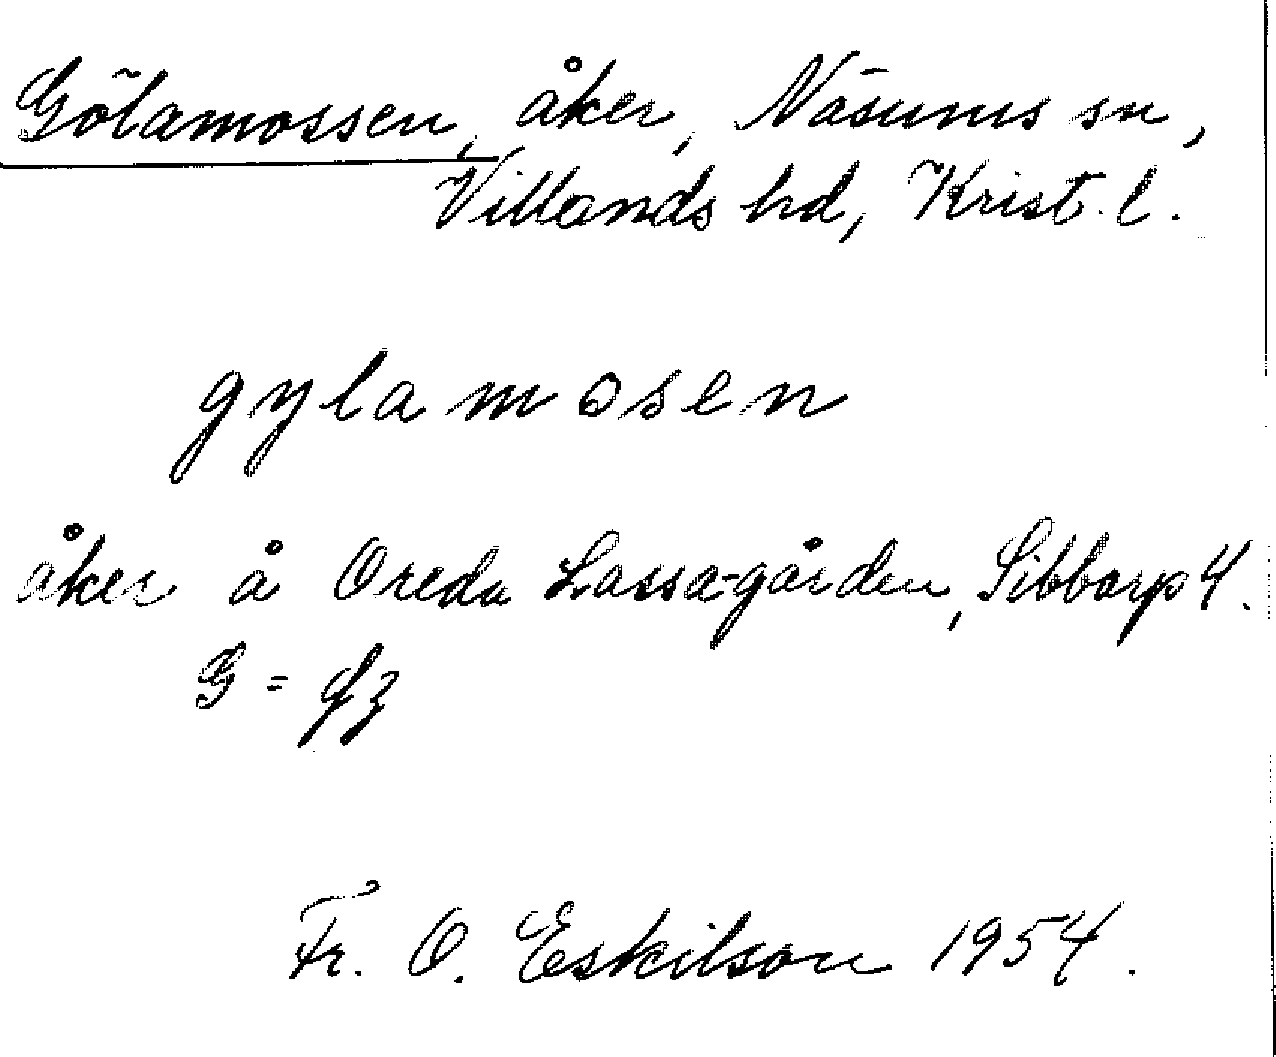 Gölamossen, åker, Näsums sn,
Villands hd, Krist. l.
gylamosen
åker å Oreda Lassa-gården, Sibbarp 4.
G = g3
Fr. O. Eskilson 1954.